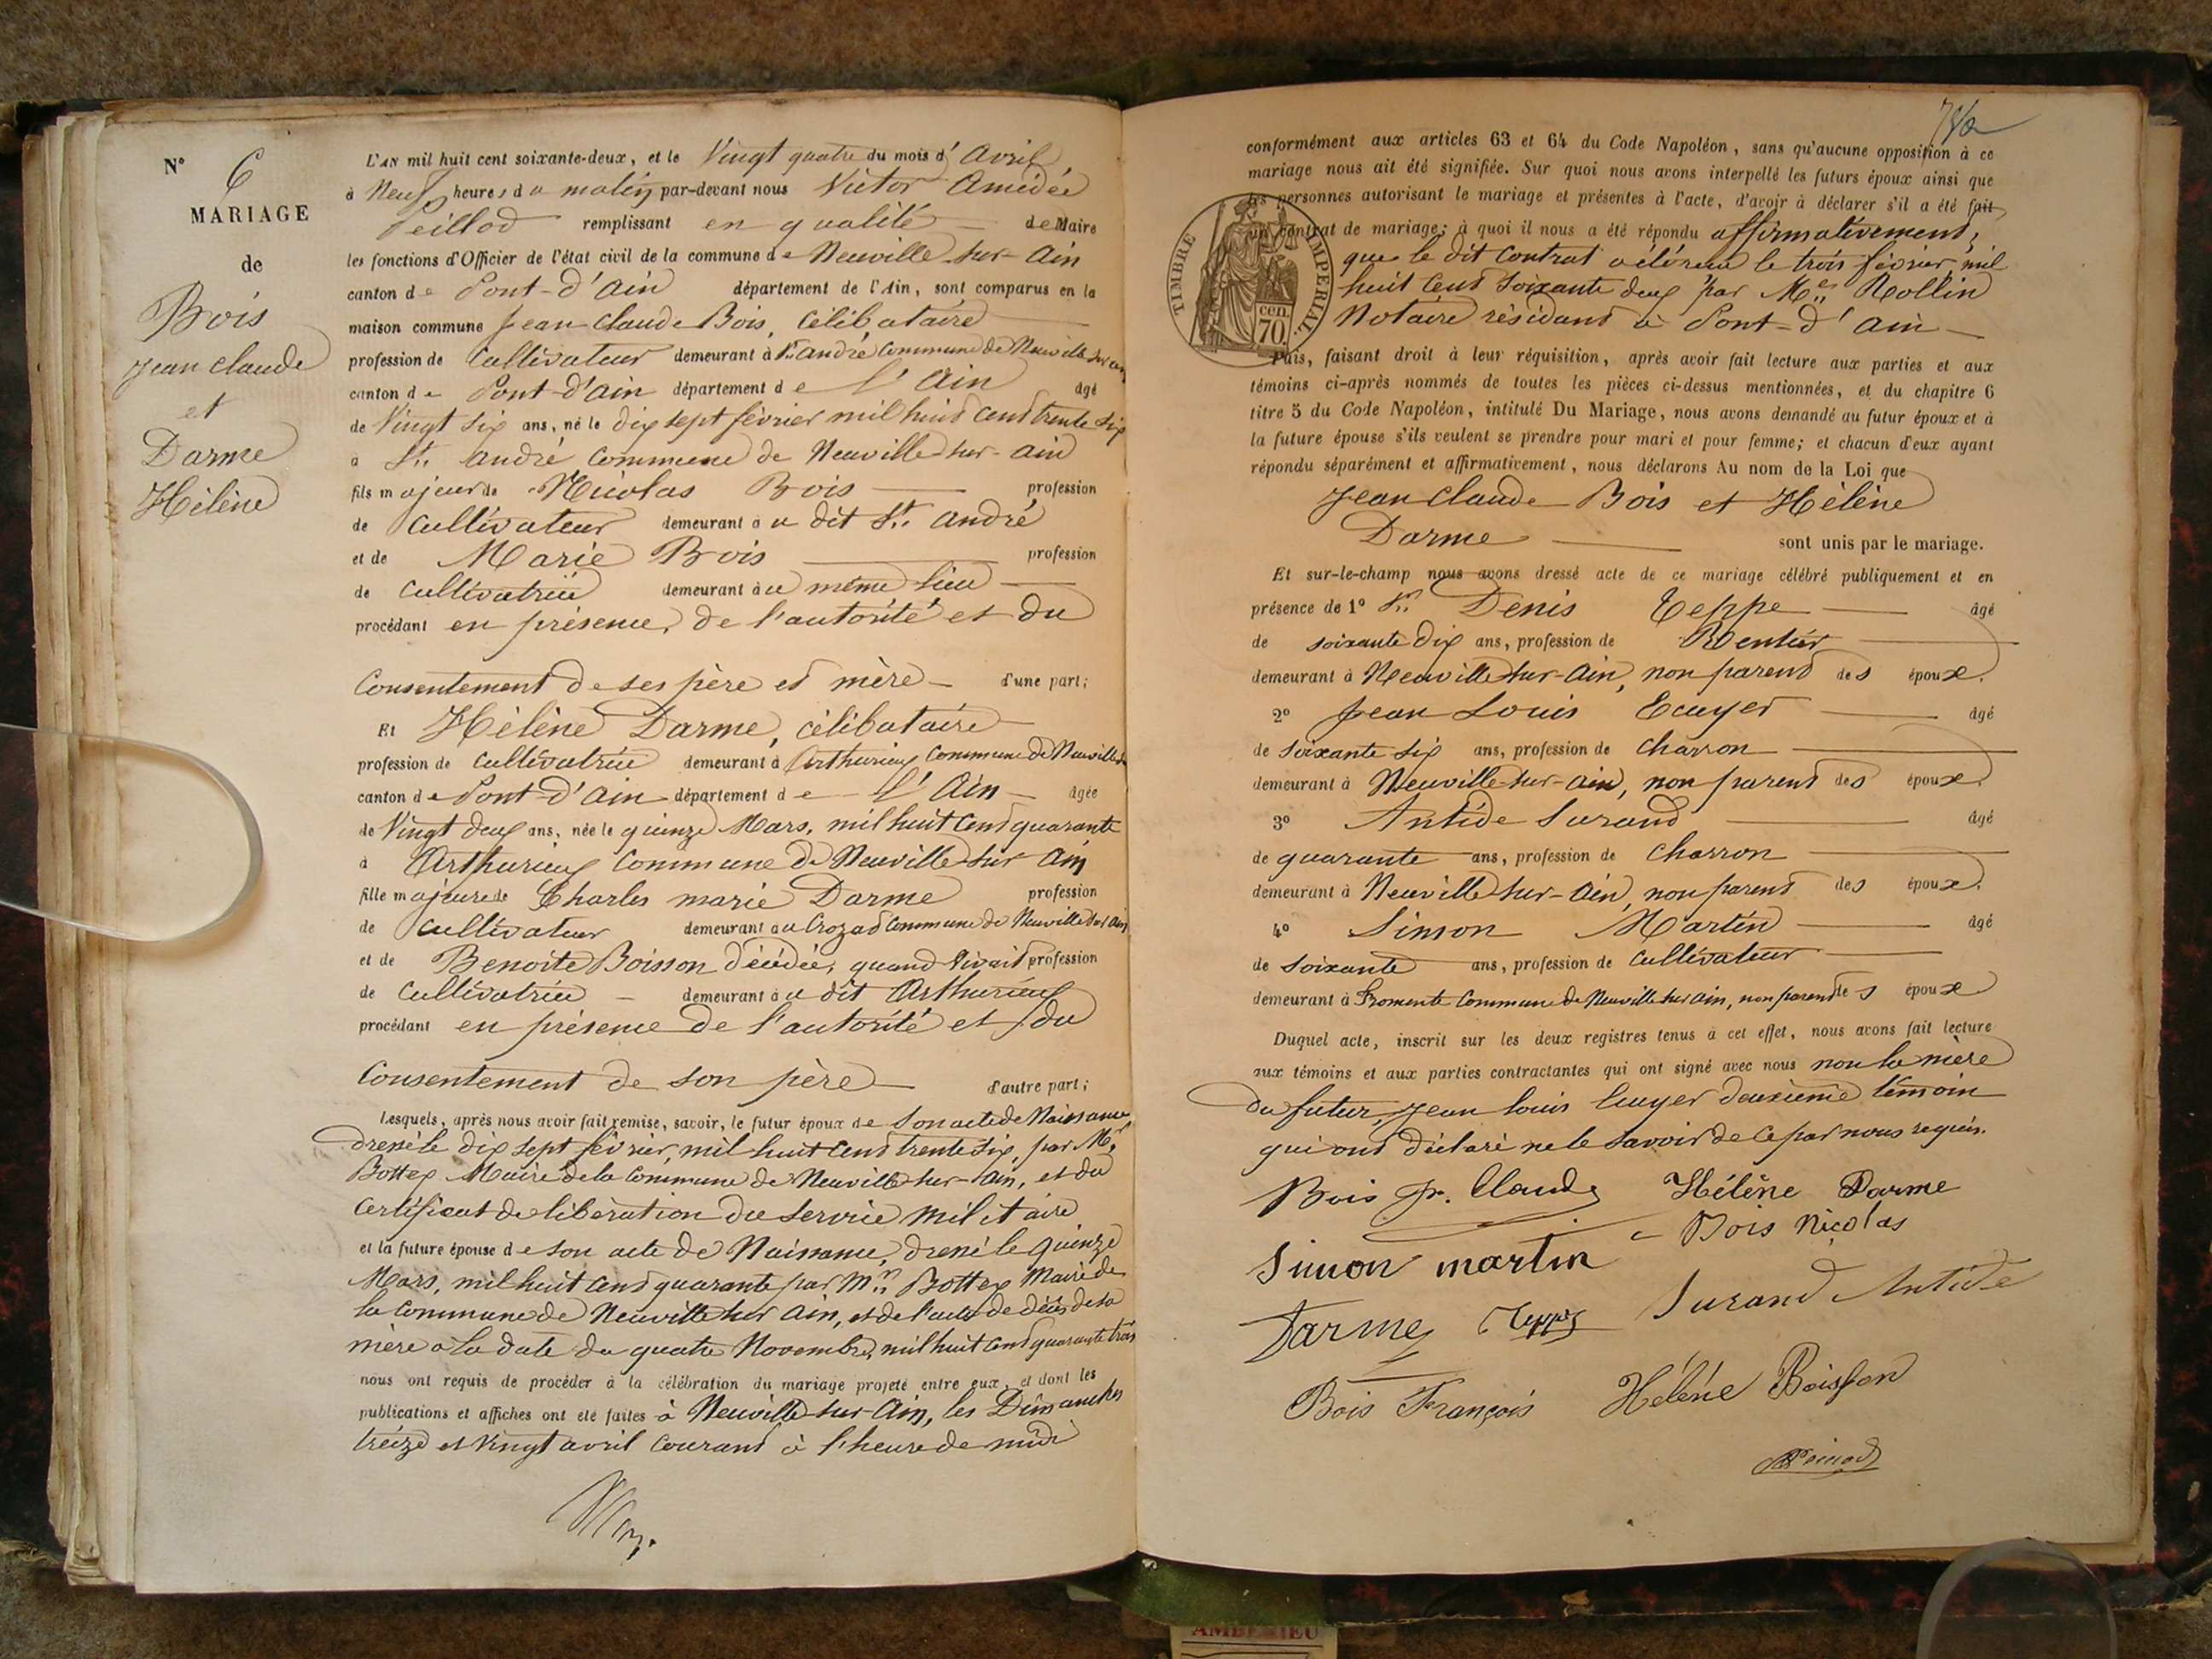 N° 6
MARIAGE
de
Bois
Jean Claude
et
Darme
Hélène
L'AN mil huit cent soixante-deux, et le Vingt quatre du mois d'avril
à Neuf heures du matin par-devant nous Victor Amédée
Peillod remplissant en qualité de Maire
les fonctions d'Officier de l'état civil de la commune de Neuville-sur-Ain
canton de Pont-d'Ain département de l'Ain, sont comparus en la
maison commune Jean Claude Bois, célibataire
profession de Cultivateur demeurant à St. andré Commune de Neuville sur ain
canton de Pont-d'Ain département de l'Ain agé
de Vingt six ans, né le dix sept février mil huit cent trente six
à St. andré Commune de Neuville-sur-ain
fils majeur de Nicolas Bois profession
de Cultivateur demeurant au dit St. andré
et de Marie Bois profession
de Cultivatrice demeurant au même lieu
procédant en présence, de l'autorité et du
Consentement de ses père et mère d'une part;
Et Hélène Darme, célibataire
profession de Cultivatrice demeurant à Arthurieux Commune de Neuville
canton de Pont-d'Ain département de l'Ain âgée
de Vingt deux ans, née le quinze Mars, mil huit cent quarante
à Arthurieux Commune de Neuville-sur-Ain
fille majeure de Charles marie Darme profession
de Cultivateur demeurant au Crozat Commune de Neuville sur Ain
et de Benoite Boisson décédée, quand vivait profession
de Cultivatrice demeurant au dit Arthurieux
procédant en présence de l'autorité et du
Consentement de son père d'autre part;
Lesquels, après nous avoir fait remise, savoir, le futur époux de son acte de Naissance
dressé le dix sept février, mil huit cent trente six, par Mr.
Bottex Maire de la Commune de Neuville-sur-Ain, et du
Certificat de libération du service militaire
et la future épouse de son acte de Naissance, dressé le quinze
Mars, mil huit cent quarante par Mr. Bottex Maire de
la Commune de Neuville sur Ain, et de l'acte de décès de sa
mère à la date du quatre Novembre, mil huit cent quarante trois
nous ont requis de procéder à la célébration du mariage projeté entre eux, et dont les
publications et affiches ont été faites à Neuville-sur-Ain, les Dimanches
treize et vingt avril Courant à l'heure de midi
conformément aux articles 63 et 64 du Code Napoléon, sans qu'aucune opposition à ce
mariage nous ait été signifiée. Sur quoi nous avons interpellé les futurs époux ainsi que
les personnes autorisant le mariage et présentes à l'acte, d'avoir à déclarer s'il a été fait
un contrat de mariage; à quoi il nous a été répondu affirmativement,
que le dit Contrat a été reçu le trois février, mil
huit cent soixante deux par Me. Rollin
Notaire résidant à Pont-d'Ain
TIMBRE IMPERIAL.
70. cen.
Puis, faisant droit à leur réquisition, après avoir fait lecture aux parties et aux
témoins ci-après nommés de toutes les pièces ci-dessus mentionnées, et du chapitre 6
titre 5 du Code Napoléon, intitulé Du Mariage, nous avons demandé au futur époux et à
la future épouse s'ils veulent se prendre pour mari et pour femme; et chacun d'eux ayant
répondu séparément et affirmativement, nous déclarons Au nom de la Loi que
Jean Claude Bois et Hélène
Darme sont unis par le mariage.
Et sur-le-champ nous avons dressé acte de ce mariage célébré publiquement et en
présence de 1° Sr. Denis Teppe âgé
de soixante dix ans, profession de Rentier
demeurant à Neuville-sur-Ain, non parent des époux.
2° Jean Louis Ecuyer âgé
de soixante six ans, profession de Charron
demeurant à Neuville-sur-Ain, non parent des époux.
3° Antide Surand âgé
de quarante ans, profession de Charron
demeurant à Neuville-sur-Ain, non parent des époux.
4° Simon Martin âgé
de soixante ans, profession de Cultivateur
demeurant à Fromente Commune de Neuville sur ain, non parent des époux
Duquel acte, inscrit sur les deux registres tenus à cet effet, nous avons fait lecture
aux témoins et aux parties contractantes qui ont signé avec nous non la mère
du futur, Jean Louis Ecuyer deuxième témoin
qui ont déclaré ne le savoir de ce par nous requis.
Bois Jn. Claude Hélène Darme
Bois Nicolas
Simon martin
Darme Teppe Surand Antide
Bois François Hélène Boisson
AMBERIEU